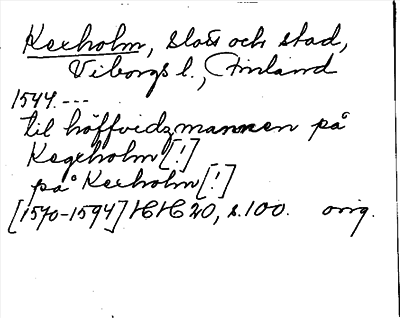 Kexholm, slott och stad,
Viborgs l., Finland
1544.---
til höffvidzmannen på
Kegeholm [!]
på Kexholm [!]
[1570-1594] HH 20, s.100. orig.